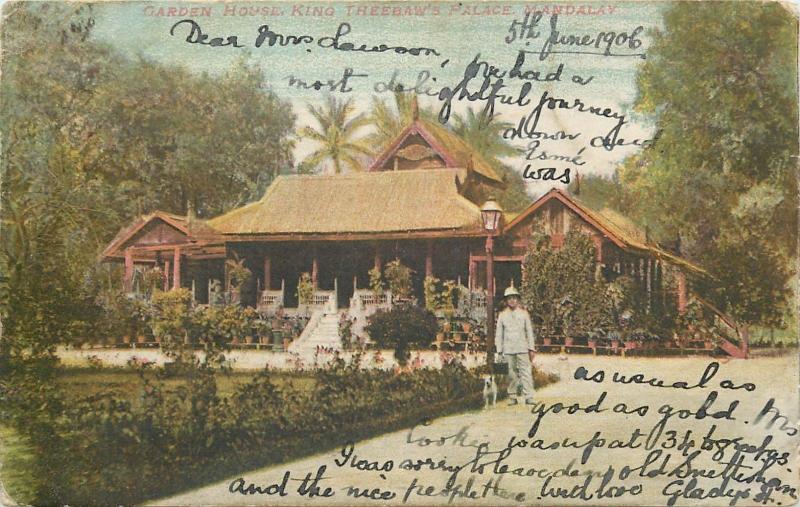 GARDEN HOUSE, KING THEEBAW'S PALACE, MANDALAY.
5th June 1906
Dear Mrs Lawson,
we had a
most delightful journey
down and
Esmé
was
as usual as
good as gold. Mrs
Cooke was up at 3½ to see us
I was sorry to leave dear old Snettisham
and the nice people there. With love Gladys H.